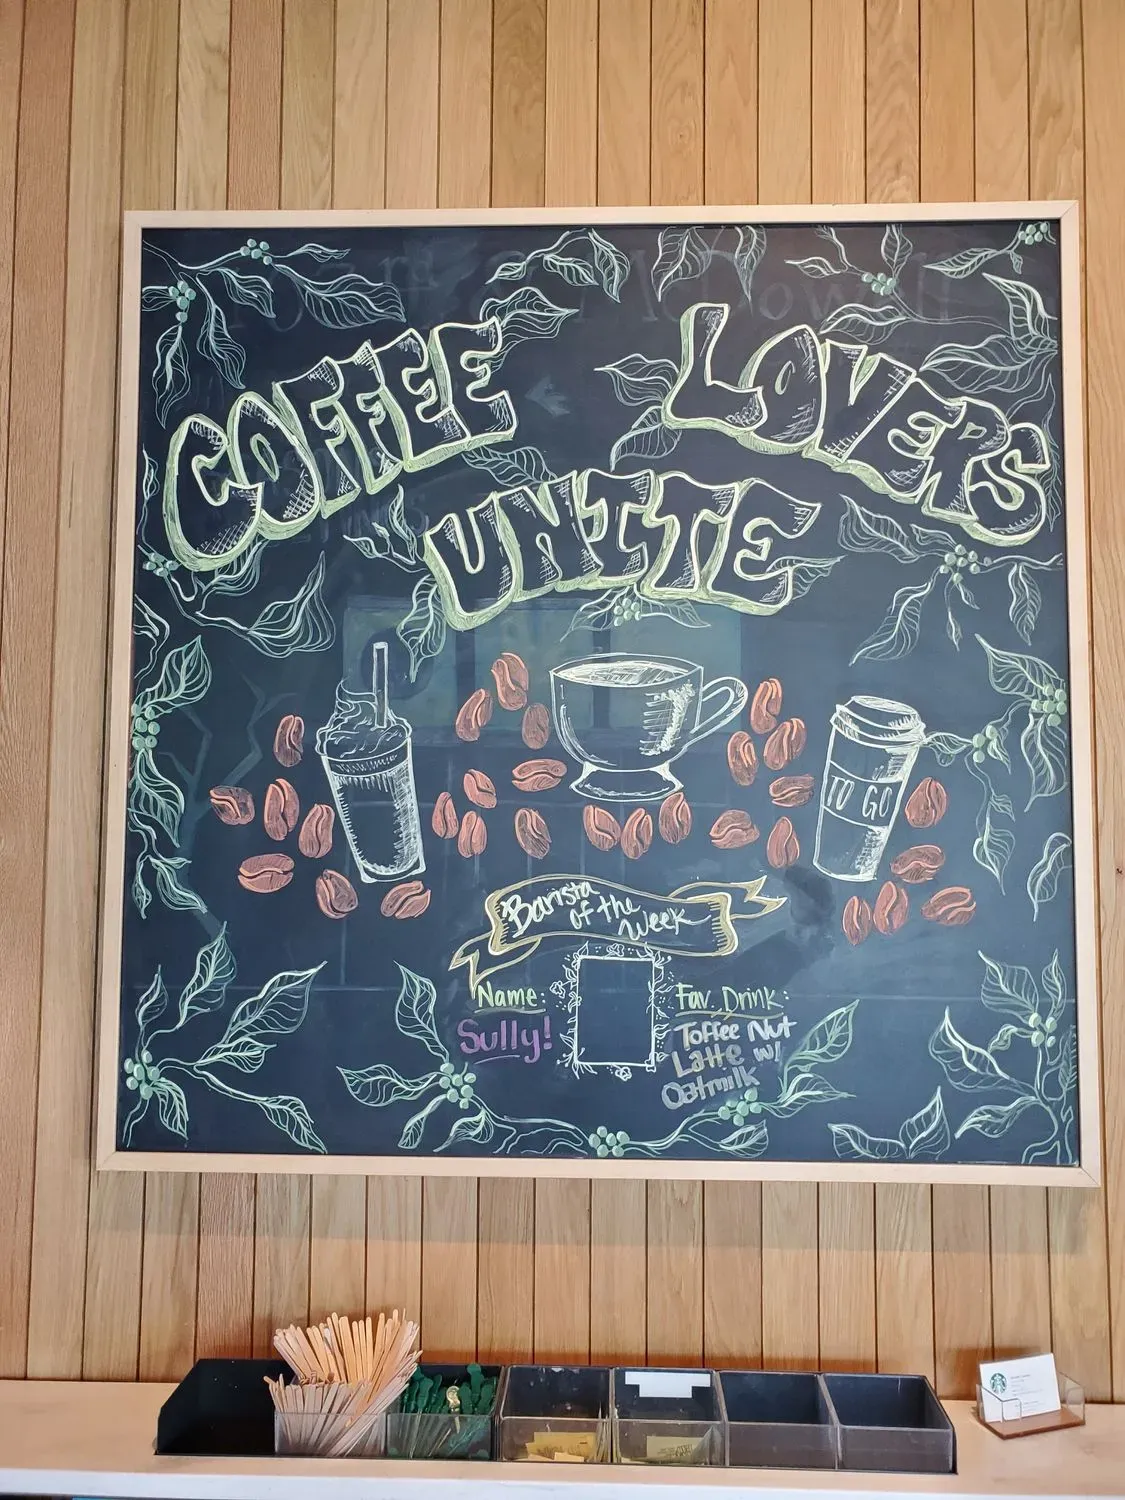 COFFEE LOVERS
UNITE
TO GO
Barista
of the
Week
Name:
Sully!
Fav. Drink:
Toffee Nut
Latte w/
Oatmilk